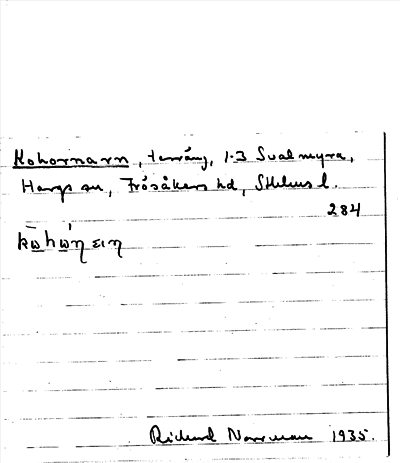 Kohornarn, terräng, 1-3 Svalmyra,
Hargs sn, Frösåkers hd, Sthlms l.
284
Richard Norrman 1935.